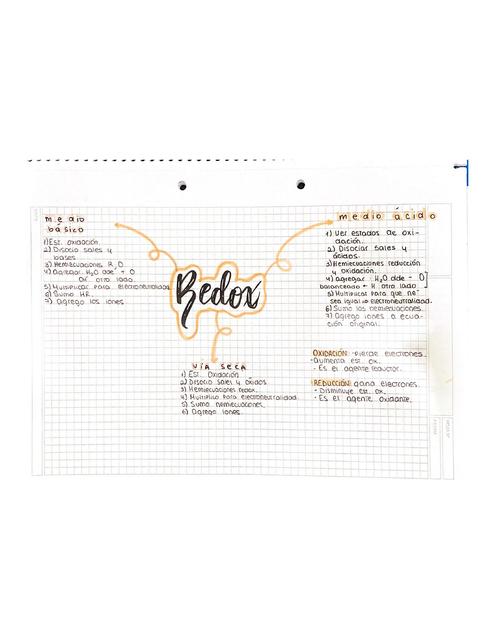 medio
básico
1) Est. oxidación
2) Disocio sales y
bases
3) Hemiecuaciones R_O
4) Agregar H₂O dde + O
OH⁻ otro lado.
5) Multiplicar para electroneutralidad
6) Sumo HR.
7) Agrego los iones
Redox
medio ácido
1) Ver estados de oxi-
dación.
2) Disociar sales y
ácidos.
3) Hemiecuaciones reducción
y oxidación.
4) agregar H₂O dde - O
balanceado + H otro lado
5) Multiplicar para que ne⁻
sea igual → electroneutralidad.
6) Sumo las hemiecuaciones.
7) Agrego iones a ecua-
ción original.
VÍA SECA
1) Est. Oxidación
2) Disocio sales y óxidos.
3) Hemiecuaciones redox.
4) Multiplico para electroneutralidad.
5) Sumo hemiecuaciones.
6) Agrego iones.
OXIDACIÓN: pierde electrones.
- Aumenta est. ox.
- Es el agente reductor.
REDUCCIÓN: gana electrones.
- Disminuye est. ox.
- Es el agente oxidante.